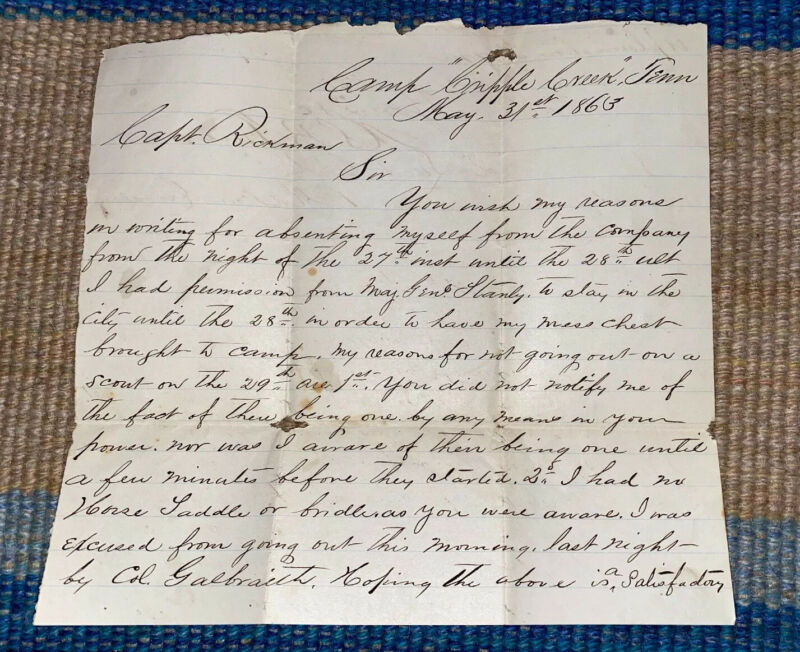 Camp "Cripple Creek", Tenn
May. 31st 1863
Capt. Rickman
Sir
You wish my reasons
in writing for absenting myself from the company
from the night of the 27th inst until the 28th ult
I had permission from Maj Genl Stanly. to stay in the
City until the 28th. in order to have my mess chest
brought to camp. My reasons for not going out on a
scout on the 29th are 1st. You did not notify me of
the fact of there being one. by any means in your
power. nor was I aware of their being one until
a few minutes before they started. 2d I had no
Horse Saddle or bridle as you were aware. I was
excused from going out this morning. last night
by Col. Galbraith. Hoping the above is a Satisfactory